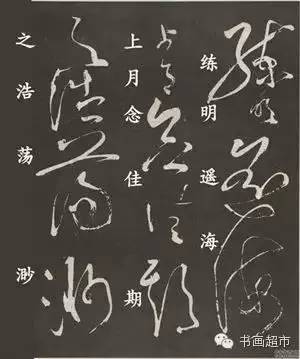 练明遥海
上月念佳期
之浩荡渺
书画超市